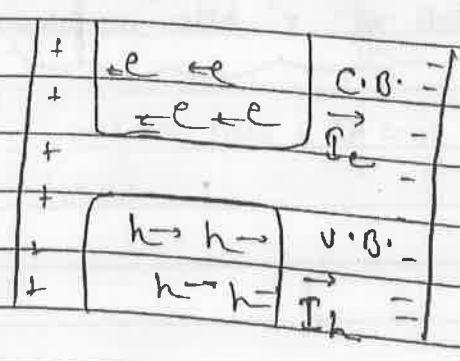 + ←e ←e C.B. =
+ ←e ←e I⃗e -
+ -
+ h→ h→ V.B. -
+ h→ h→ I⃗h =
+